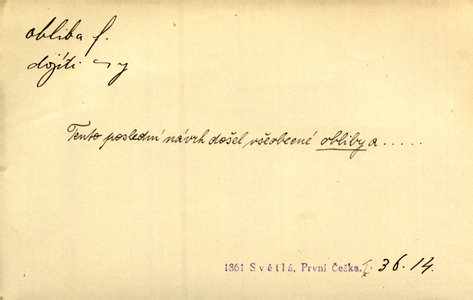 obliba f.
dojíti ~y
Tento poslední návrh došel všeobecné obliby a.....
1861 Světlá, První Češka. I. 36.14.